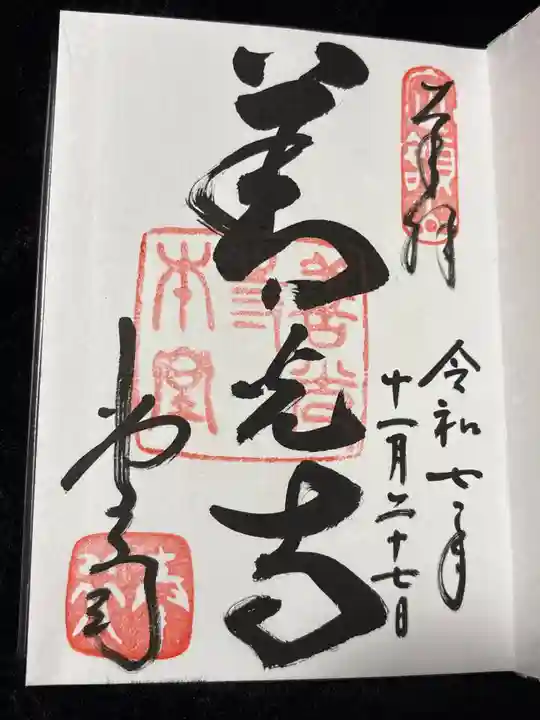 奉拝
令和七年
十一月二十七日
善光寺
本堂